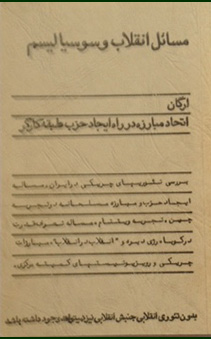 مسائل انقلاب و سوسیالیسم
ارگان
اتحاد مبارزه در راه ایجاد حزب طبقه کارگر
بررسی تئوریهای چریکی در ایران، مساله
ایجاد حزب و مبارزه مسلحانه در تجربه
چین، تجربه ویتنام، مساله
در کوبا، رژی دبره و "انقلاب در انقلاب"، مبارزات
چریکی و رویزیونیستهای کمیته مرکزی
بدون تئوری انقلابی جنبش انقلابی نیز نمیتواند وجود داشته باشد